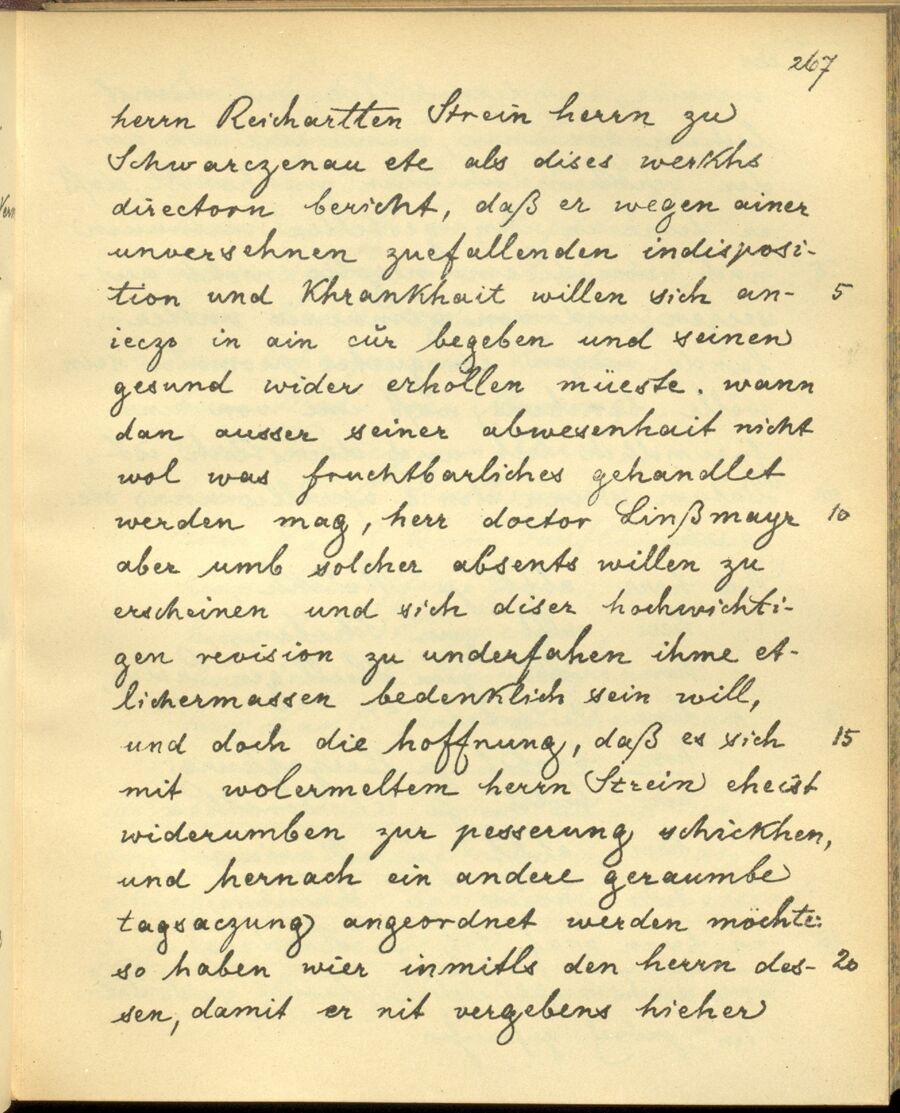 267
herrn Reichartten Strein herrn zu
Schwarczenau etc als dises werkhs
directorn bericht, daß er wegen ainer
unversehnen zuefallenden indisposi-
tion und Khrankhait willen sich an- 5
ieczo in ain cŭr begeben und seinen
gesund wider erhollen müeste. wann
dan ausser seiner abwesenhait nicht
wol was fruchtbarliches gehandlet
werden mag, herr doctor Linßmayr 10
aber umb solcher absents willen zu
erscheinen und sich diser hochwichti-
gen revision zu underfahen ihme et-
lichermassen bedenklich sein will,
und doch die hoffnung, daß es sich 15
mit wolermeltem herrn Strein eheist
widerumben zur pesserung schickhen,
und hernach ein andere geraumbe
tagsaczung angeordnet werden möchte:
so haben wier inmitls den herrn des- 20
sen, damit er nit vergebens hieher